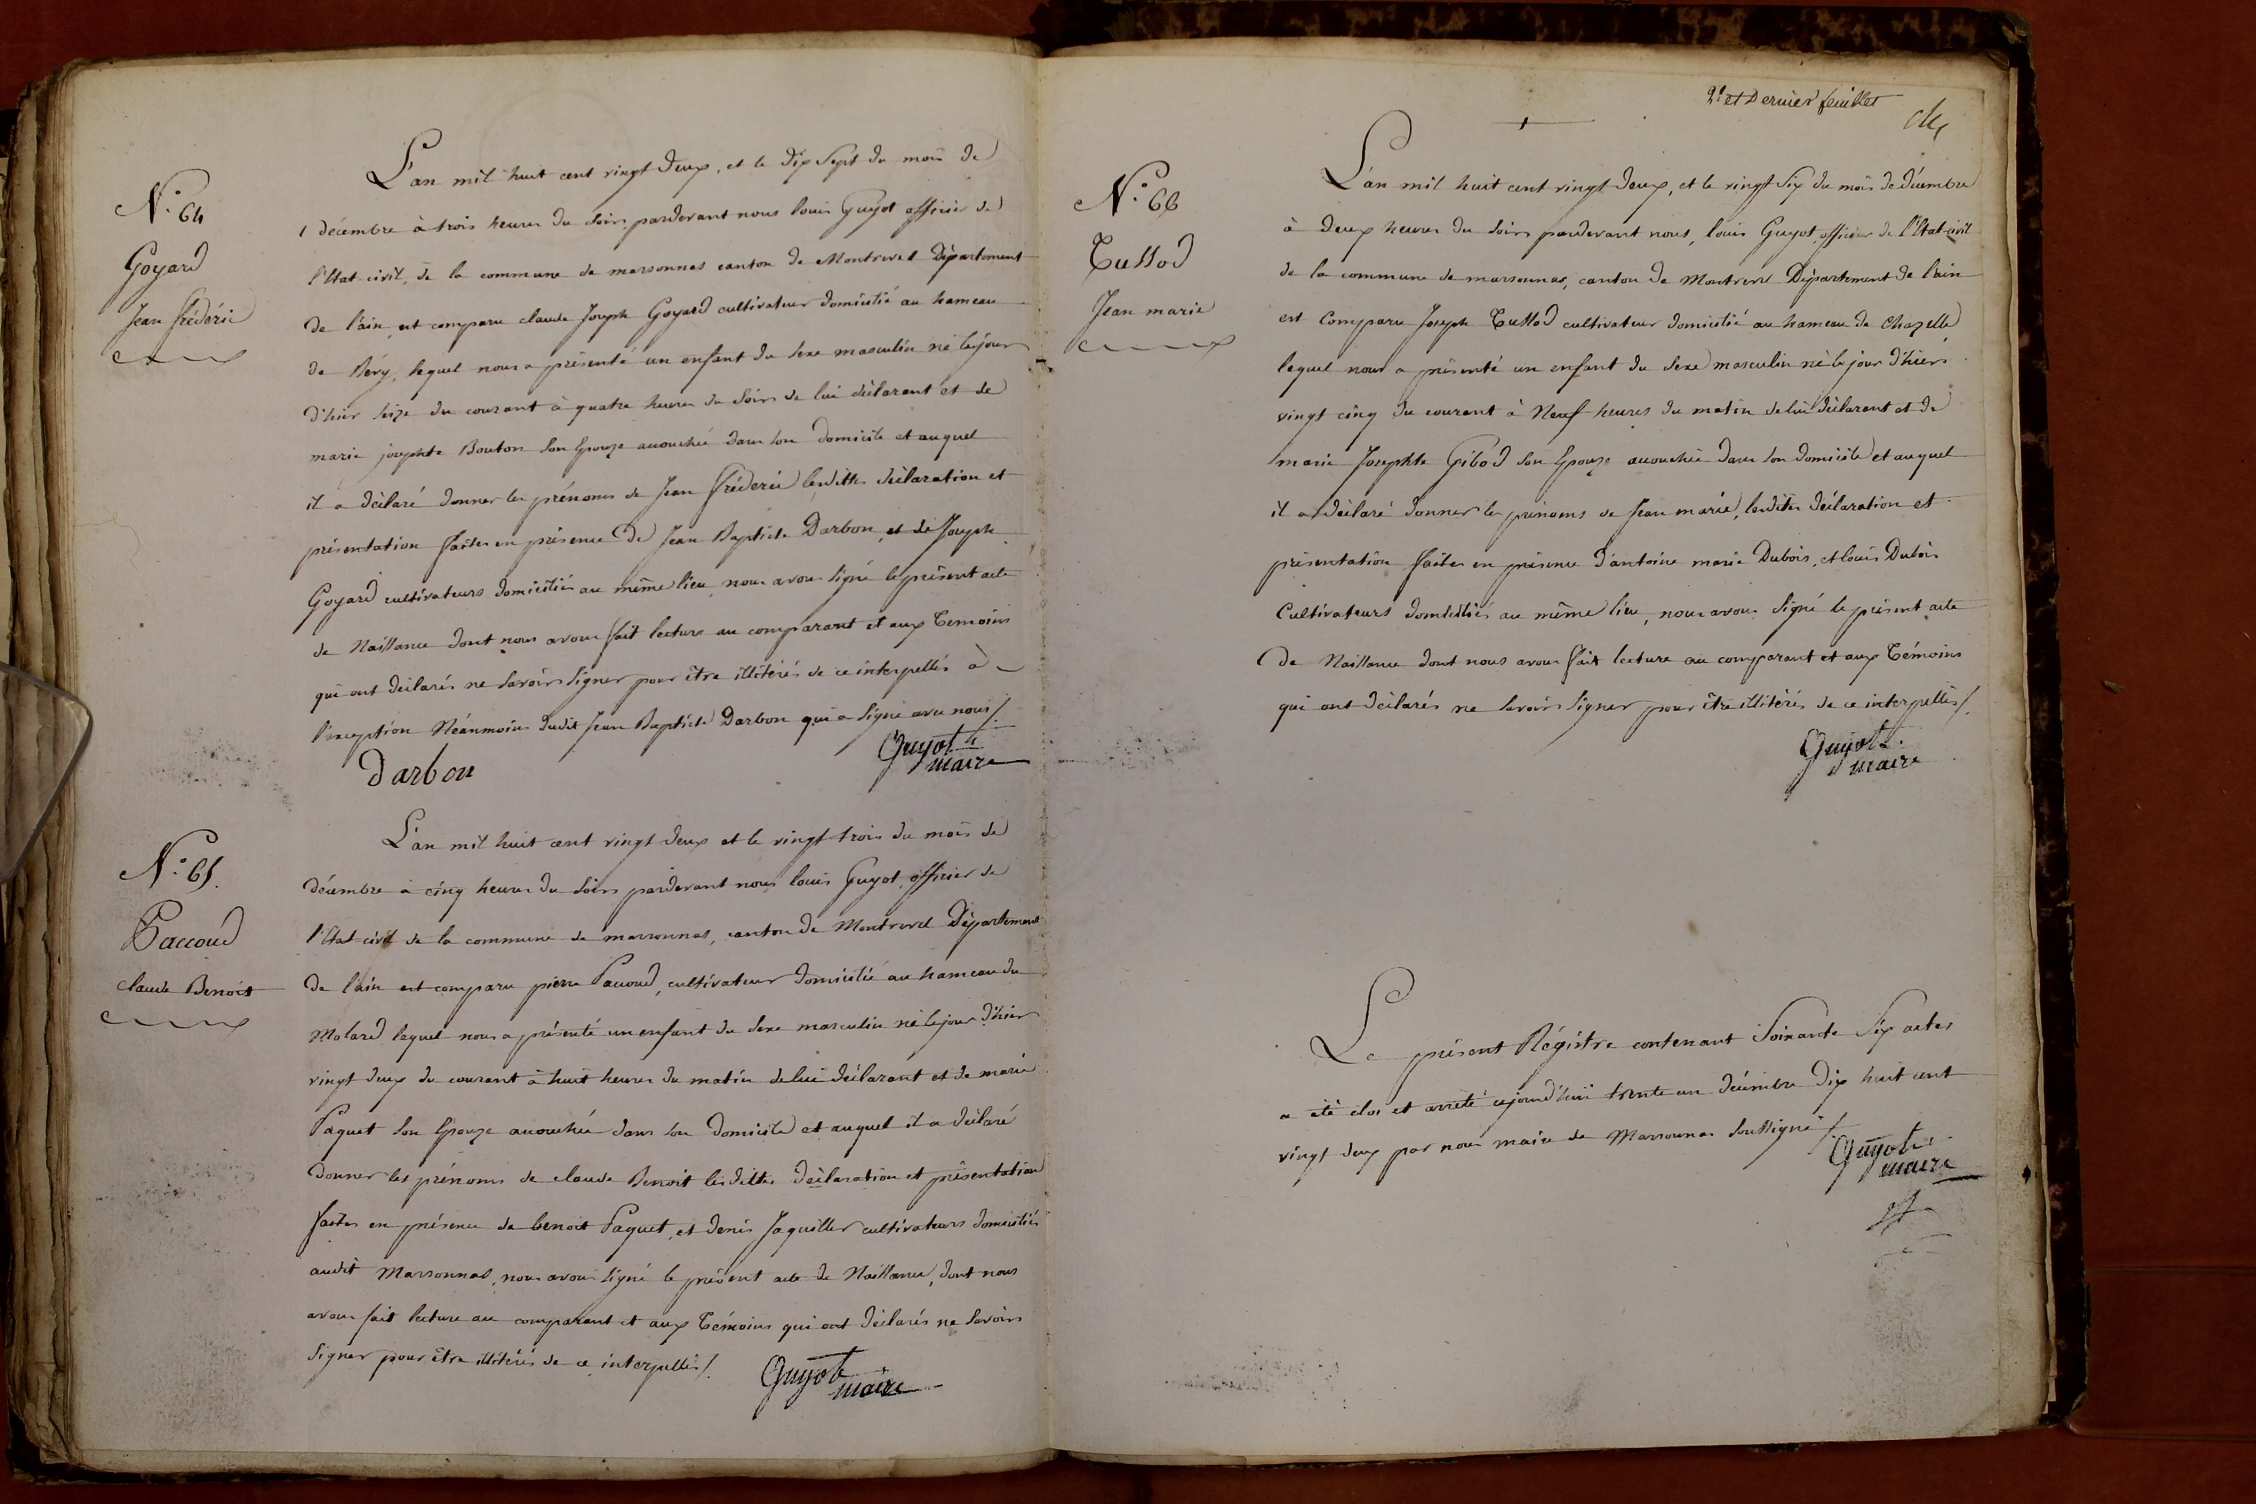 N.° 64
Goyard
Jean fréderic
L'an mil huit cent vingt deux, et le dix sept du mois de
décembre à trois heures du soir, pardevant nous louis Guyot officier de
l'Etat-civil, de la commune de marsonnas canton de Montrevel Département
de l'ain, est comparu claude Joseph Goyard cultivateur domicilié au hameau
de Béry, lequel nous a présenté un enfant du sexe masculin né le jour
d'hier seize du courant à quatre heures du soir de lui déclarant et de
marie josephte Bouton son Epouze accouchée dans son domicile et auquel
il a déclaré donner les prénoms de Jean fréderic lesdittes déclaration et
présentation faites en présence de Jean Baptiste Darbon, et de Joseph
Goyard cultivateurs domiciliés au même lieu, nous avons signé le présent acte
de Naissance dont nous avons fait lecture au comparant et aux Temoins
qui ont déclarés ne savoir signer pour être illitérés de ce interpellés à
l'exception Néanmoins dudit Jean Baptiste Darbon qui a signé avec nous /.
Darbon
Guyot
maire
N.° 65.
Paccoud
claude Benoit
L'an mil huit cent vingt deux et le vingt trois du mois de
décembre à cinq heures du soir pardevant nous louis Guyot, officier de
l'Etat-civil de la commune de marsonnas, canton de Montrevel Département
de l'ain est comparu pierre Paccoud, cultivateur domicilié au hameau du
Molard lequel nous a présenté un enfant du sexe masculin né le jour d'hier
vingt deux du courant à huit heures du matin de lui déclarant et de marie
Paquet son Epouze accouchée dans son domicile et auquel il a déclaré
donner les prénoms de claude Benoit lesdittes déclaration et présentation
faites en présence de benoit Paquet, et denis Jaquiller cultivateurs domiciliés
audit Marsonnas, nous avons signé le présent acte de Naissance, dont nous
avons fait lecture au comparant et aux Témoins qui ont déclarés ne savoir
signer pour être illitérés de ce interpellés /.
Guyot
maire
et Dernier feuillet
N.° 66
Tussod
Jean marie
L'an mil huit cent vingt deux, et le vingt six du mois de décembre
à deux heures du soir pardevant nous, louis Guyot, officier de l'Etat-civil
de la commune de marsonnas, canton de Montrevel Département de l'ain
est Comparu Joseph Tussod cultivateur domicilié au hameau de Chazelle
lequel nous a présenté un enfant du sexe masculin né le jour d'hiers
vingt cinq du courant à Neuf heures du matin de lui déclarant et de
marie Josephte Gibod son Epouze accouchée dans son domicile et auquel
il a déclaré donner les prénoms de Jean marie, lesdites déclaration et
présentation faites en présence d'antoine marie Dubois, et louis Dubois
Cultivateurs domiciliés au même lieu, nous avons signé le présent acte
de Naissance dont nous avons fait lecture au comparant et aux Témoins
qui ont déclarés ne savoir signer pour être illitérés de ce interpellés /.
Guyot
maire
Le présent Régistre contenant Soixante Six actes
a été clos et arrêté cejourd'hui trente un décembre Dix huit cent
vingt deux par nous maire de Marsonnas soussigné /.
Guyot
maire